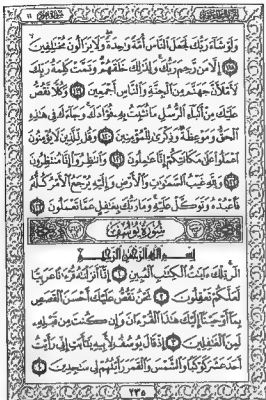 وَلَوْ شَآءَ رَبُّكَ لَجَعَلَ ٱلنَّاسَ أُمَّةً وَٰحِدَةً وَلَا يَزَالُونَ مُخْتَلِفِينَ
١١٨ إِلَّا مَن رَّحِمَ رَبُّكَ وَلِذَٰلِكَ خَلَقَهُمْ وَتَمَّتْ كَلِمَةُ رَبِّكَ
لَأَمْلَأَنَّ جَهَنَّمَ مِنَ ٱلْجِنَّةِ وَٱلنَّاسِ أَجْمَعِينَ ١١٩ وَكُلًّا نَّقُصُّ
عَلَيْكَ مِنْ أَنۢبَآءِ ٱلرُّسُلِ مَا نُثَبِّتُ بِهِۦ فُؤَادَكَ وَجَآءَكَ فِى هَٰذِهِ
ٱلْحَقُّ وَمَوْعِظَةٌ وَذِكْرَىٰ لِلْمُؤْمِنِينَ ١٢٠ وَقُل لِّلَّذِينَ لَا يُؤْمِنُونَ
ٱعْمَلُوا۟ عَلَىٰ مَكَانَتِكُمْ إِنَّا عَٰمِلُونَ ١٢١ وَٱنتَظِرُوٓا۟ إِنَّا مُنتَظِرُونَ
١٢٢ وَلِلَّهِ غَيْبُ ٱلسَّمَٰوَٰتِ وَٱلْأَرْضِ وَإِلَيْهِ يُرْجَعُ ٱلْأَمْرُ كُلُّهُۥ
فَٱعْبُدْهُ وَتَوَكَّلْ عَلَيْهِ وَمَا رَبُّكَ بِغَٰفِلٍ عَمَّا تَعْمَلُونَ ١٢٣
سُورَةُ يُوسُفَ
بِسْمِ ٱللَّهِ ٱلرَّحْمَٰنِ ٱلرَّحِيمِ
الٓر تِلْكَ ءَايَٰتُ ٱلْكِتَٰبِ ٱلْمُبِينِ ١ إِنَّآ أَنزَلْنَٰهُ قُرْءَٰنًا عَرَبِيًّا
لَّعَلَّكُمْ تَعْقِلُونَ ٢ نَحْنُ نَقُصُّ عَلَيْكَ أَحْسَنَ ٱلْقَصَصِ
بِمَآ أَوْحَيْنَآ إِلَيْكَ هَٰذَا ٱلْقُرْءَانَ وَإِن كُنتَ مِن قَبْلِهِۦ
لَمِنَ ٱلْغَٰفِلِينَ ٣ إِذْ قَالَ يُوسُفُ لِأَبِيهِ يَٰٓأَبَتِ إِنِّى رَأَيْتُ
أَحَدَ عَشَرَ كَوْكَبًا وَٱلشَّمْسَ وَٱلْقَمَرَ رَأَيْتُهُمْ لِى سَٰجِدِينَ ٤
٢٣٥